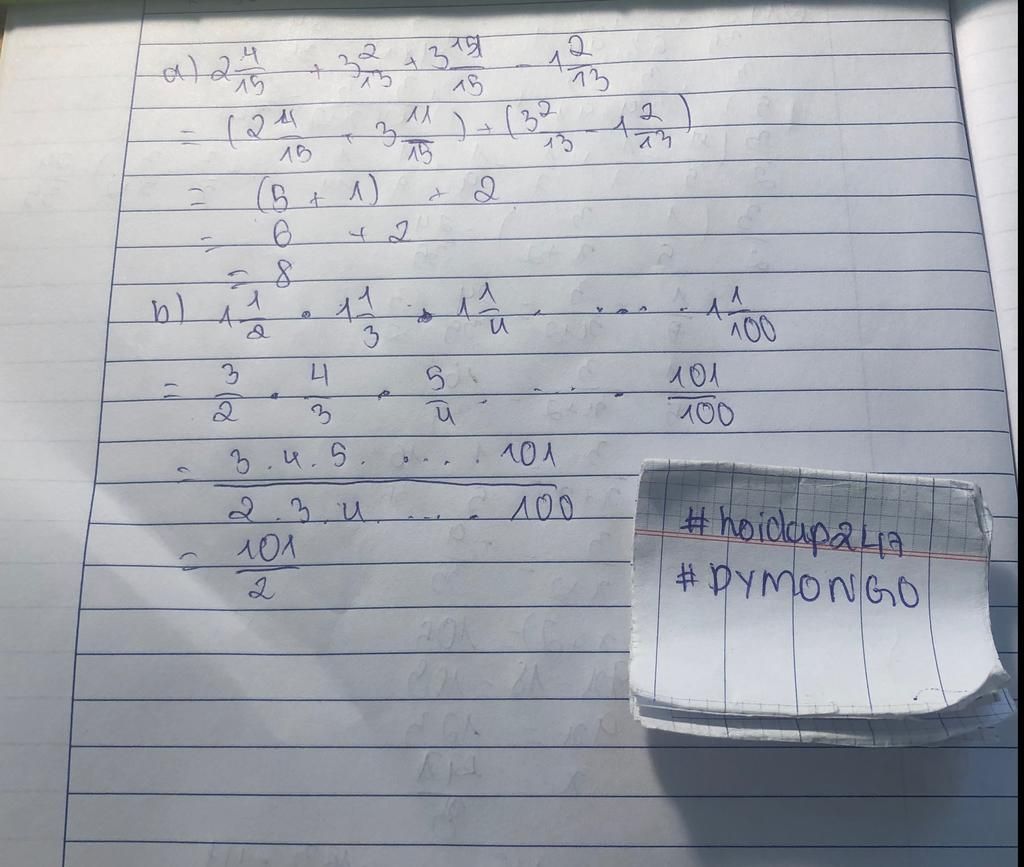 a) 2 4/15 + 3 2/13 + 3 11/15 - 1 2/13
= (2 4/15 + 3 11/15) + (3 2/13 - 1 2/13)
= (5 + 1) + 2
= 6 + 2
= 8
b) 1 1/2 . 1 1/3 . 1 1/4 . .... . 1 1/100
= 3/2 . 4/3 . 5/4 . .... . 101/100
= 3 . 4 . 5 . .... 101 / 2 . 3 . 4 . .... . 100
= 101/2
#hoidap247
#DYMONGO